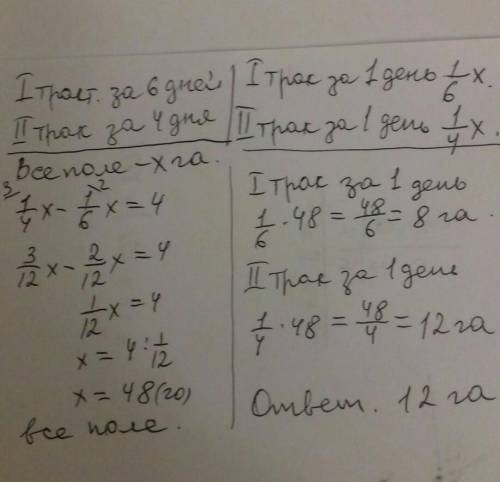 I тракт. за 6 дней
II трак за 4 дня
I трак за 1 день 1/6 x.
II трак за 1 день 1/4 x.
Все поле – x га.
3 1/4 x – 2 1/6 x = 4
3/12 x – 2/12 x = 4
1/12 x = 4
x = 4 : 1/12
x = 48 (га)
все поле.
I трак за 1 день
1/6 · 48 = 48/6 = 8 га.
II трак за 1 день
1/4 · 48 = 48/4 = 12 га
Ответ. 12 га